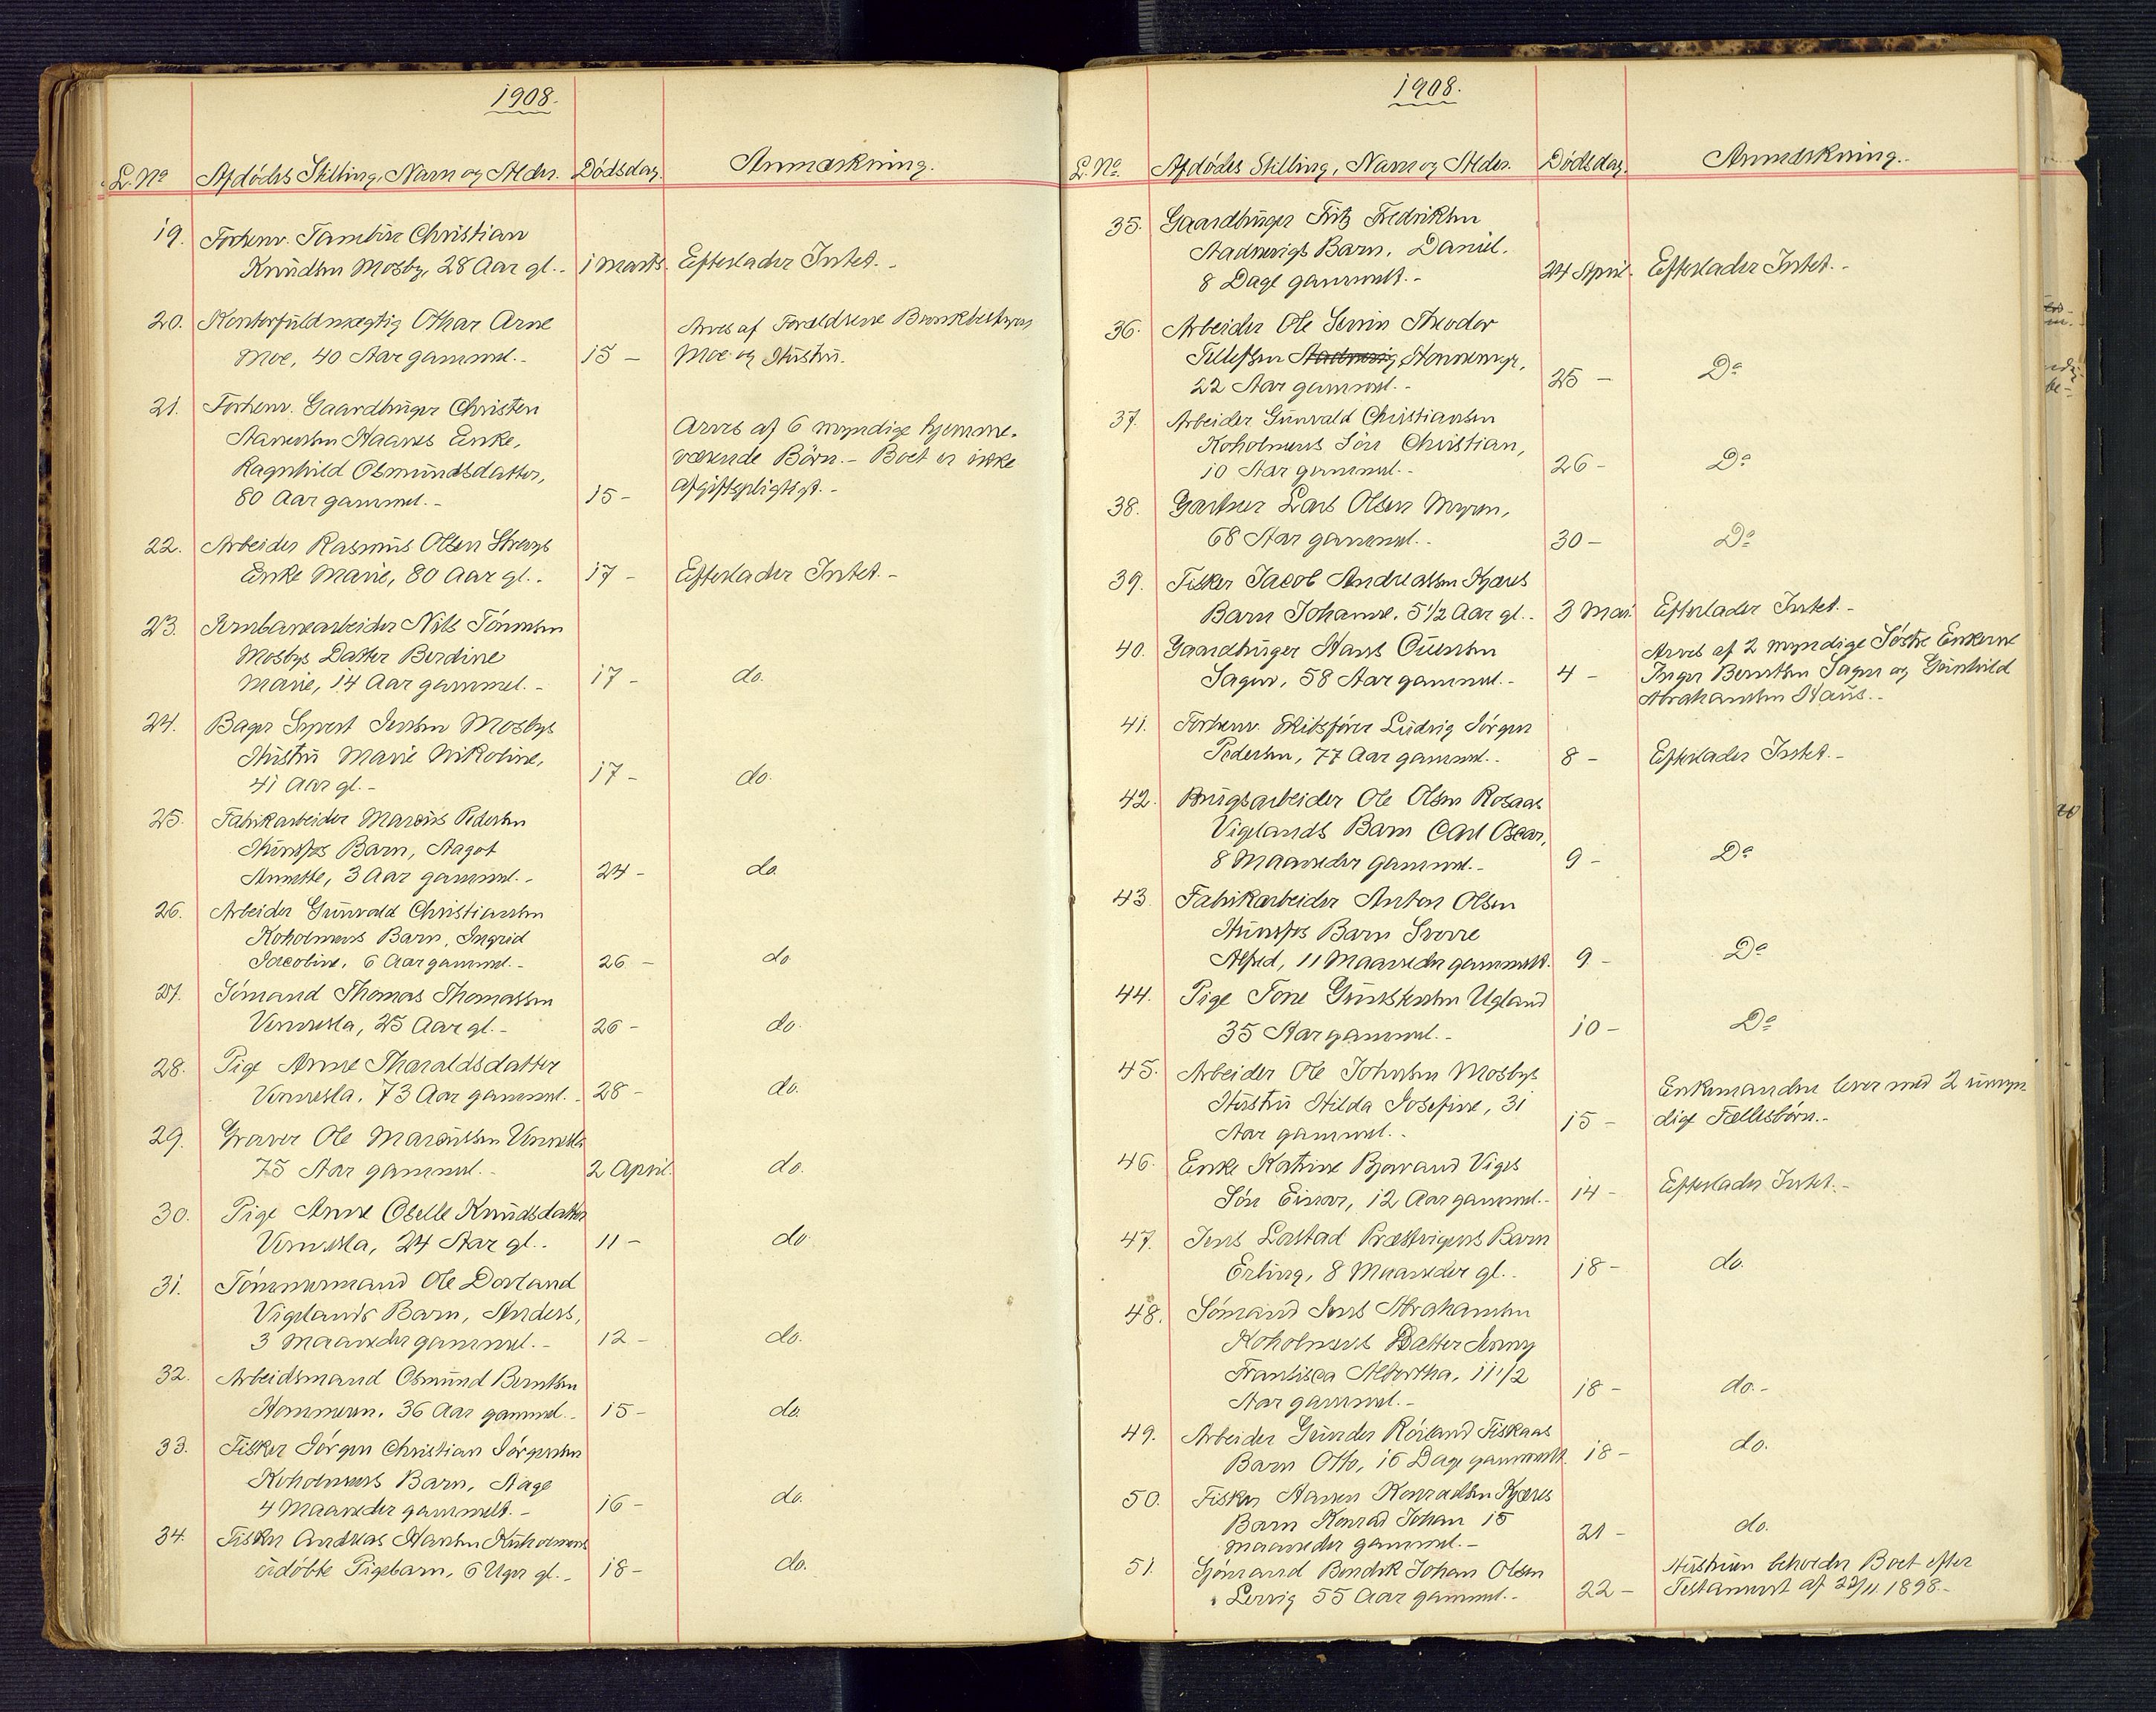 1908.
L. No Afdødes Stilling, Navn og Alder. Dødsdag. Anmærkning.
19. Forhenv. Tambur Christian
Knudsen Mosby, 28 Aar gl. - 1 Marts. Efterlader Intet. -
20. Kontorfuldmægtig Othar Arne Arves af Forældrene Brukbestyrer
Moe, 40 Aar gammel. - 15 - Moe og Hustru.
21. Forhenv. Gaardbruger Christen
Aanensen Haanes Enke, Arves af 6 myndige hjemme-
Ragnhild Osmundsdatter, værende Börn. - Boet er ikke
80 Aar gammel. - 15 - afgiftspligtigt. -
22. Arbeider Rasmus Olsen Strays
Enke Marie, 80 Aar gl. . 17 - Efterlader Intet. -
23. Jernbanearbeider Nils Tönnesen
Mosbys Datter Berdine
Marie, 14 Aar gammel. - 17 - do.
24. Bager Syvert Jensen Mosbys
Hustru Marie Nikoline,
41 Aar gl. - 17 - do.
25. Fabrikarbeider Marcus Pedersen
Hunsfos Barn, Aagot
Annette, 3 Aar gammel. - 24 - do
26. Arbeider Gunvald Christiansen
Koholmens Barn, Ingrid
Jacobine, 6 Aar gammel. - 26 - do
27. Sömand Thomas Thomassen
Vennesla, 25 Aar gl. - 26 - do.
28. Pige Anne Tharaldsdatter
Vennesla, 73 Aar gammel. - 28 - do.
29. Graver Ole Marcussen Vennesla
75 Aar gammel. - 2 April. do.
30. Pige Anne Oselle Knudsdatter
Vennesla, 24 Aar gl. . 11 - do.
31. Tömmermand Ole Dovland
Vigelands Barn, Anders,
3 Maaneder gammel. - 12 - do.
32. Arbeidsmand Osmund Berntsen
Hommeren, 36 Aar gammel. - 15 - do.
33. Fisker Jörgen Christian Jörgensen
Koholmens Barn, Aage
4 Maaneder gammelt. - 16 - do.
34. Fisker Andreas Hansen Kuholmens
udöbte Pigebarn, 6 Uger gl. - 18 - do.
1908.
L. No. Afdødes Stilling, Navn og Alder. Dødsdag. Anmærkning.
35. Gaardbruger Fritz Fredriksen
Aadnevigs Barn, Daniel,
8 Dage gammelt. - 24 April. Efterlader Intet. -
36. Arbeider Ole Severin Theodor
Tellefsen Aadnevig,
22 Aar gammel. - 25 - Do
37. Arbeider Gunvald Christiansen
Koholmens Sön Christian,
10 Aar gammel. - 26 - Do
38. Gartner Lars Olsen Myren,
68 Aar gammel. - 30 - Do
39. Fisker Jacob Andreassen Kjæres
Barn Johanne, 5 1/2 Aar gl. . 3 Mai. Efterlader Intet. -
40. Gaardbruger Hans Ouensen Arves af 2 myndige Söstre Enkerne
Sagen, 58 Aar gammel. - 4 - Inger Berntsen Sagen og Gunhild
Abrahamsen Haus. -
41. Forhenv. Skibsförer Ludvig Jörgen
Pedersen, 77 Aar gammel. - 8 - Efterlader Intet. -
42. Brugsarbeider Ole Olsen Rosaas
Vigelands Barn Carl Oscar,
8 Maaneder gammel. - 9 - Do
43. Fabrikarbeider Anton Olsen
Hunsfos Barn Sverre
Alfred, 11 Maaneder gammelt. 9 - Do
44. Pige Tone Gunstensen Ugland
35 Aar gammel. - 10 - Do
45. Arbeider Ole Johnsen Mosbys Enkemanden lever med 2 umyn-
Hustru Hilda Josefine, 31 15 - dige Fællesbörn. -
Aar gammel. -
46. Enke Katrine Bjorvand Viges
Sön Einar, 12 Aar gammel. - 14 - Efterlader Intet. -
47. Jens Lastad Præstvigens Barn
Erling, 8 Maaneder gl. . 18 - do.
48. Sömand Jens Abrahamsen
Koholmens Datter Anny
Fransisca Albertha, 11 1/2
Aar gammel. - 18 - do. -
49. Arbeider Gunder Röiland Fiskaas
Barn Otto, 16 Dage gammelt. 18 - do.
50. Fisker Aanen Konradsen Kjæres
Barn Konrad Johan 15
Maaneder gammel. - 21 - do.
51. Sjömand Bendik Johan Olsen Hustruen beholder Boet efter
Lervig 55 Aar gammel. - 22 - Testament af 22/11 1898. -